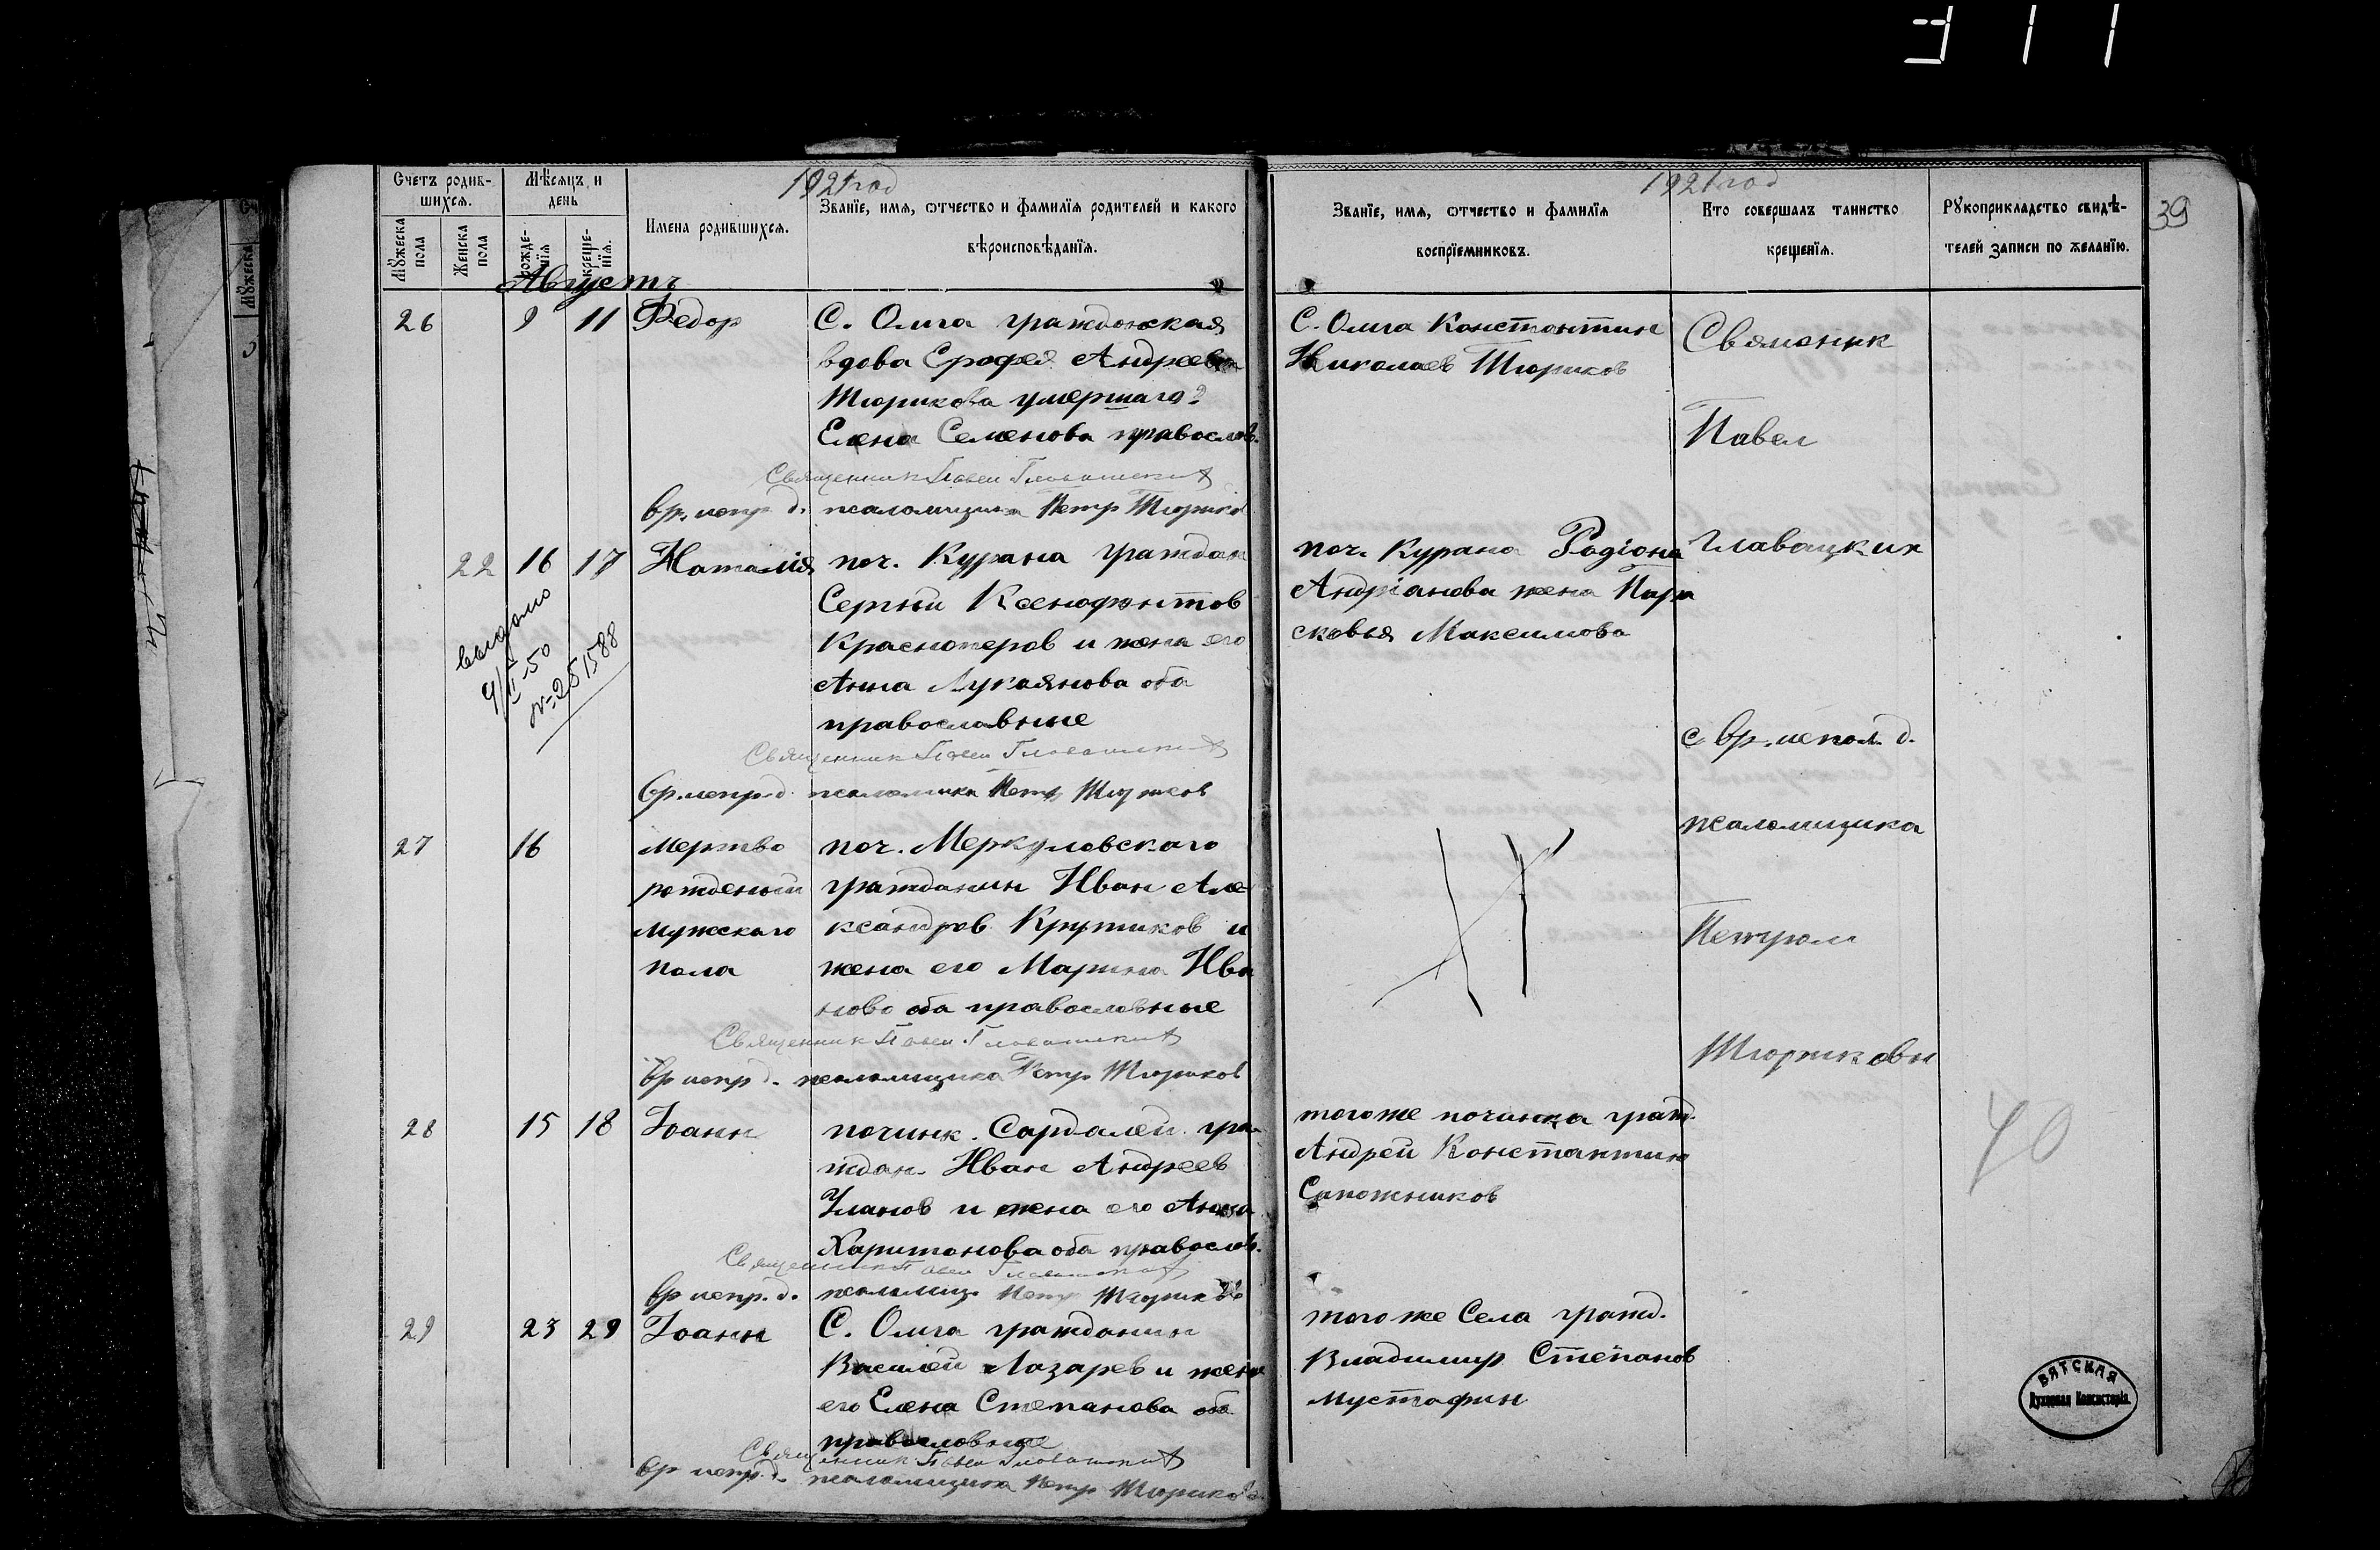 311
1921 год
1921 год
39
Счетъ родив-
шихся.
Мѣсяцъ и
день
Мужеска
пола
Женска
пола
рожде-
нія
креще-
нія.
Имена родившихся.
Званіе, имя, отчество и фамилія родителей и какого
вѣроисповѣданія.
Званіе, имя, отчество и фамилія
воспріемниковъ.
Кто совершалъ таинство
крещенія.
Рукоприкладство свидѣ-
телей записи по желанію.
Августъ
26 9 11 Федор
С. Олига гражданская
вдова Ерофея Андреева
Тюрикова умершаго
Елена Семенова православ.
Священник Павел Главацких
вр. испр. д. псаломщика Петр Тюриков
С. Олига Константин
Николаев Тюриков
22 16 17 Наталія
поч. Курана граждан
Сергій Ксенофонтов
Красноперов и жена его
Анна Лукаянова оба
православные
Священник Павел Главацких
вр. испр. д. псаломщика Петр Тюриков
выдано
9/II-50
№ 251588
поч. Курана Родіона
Андріанова жена Пара
сковья Максимова
27 16
мертво
рожденый
мужскаго
пола
поч. Меркуловскаго
гражданин Иван Але
ксандров Крутиков и
жена его Марина Ива
нова оба православные
Священник Павел Главацких
вр испр д. псаломщика Петр Тюриков
28 15 18 Іоанн
починк. Сардалей гра
ждан. Иван Андреев
Уланов и жена его Анна
Харитонова оба православ.
Священник Павел Главацких
вр испр. д. псаломщ. Петр Тюриков
тогоже починка гражд.
Андрей Константин
Сапожников
29 23 29 Іоанн
С. Олига гражданин
Василей Лазарев и жена
его Елена Степанова оба
православные
Священник Павел Главацких
вр испр. д. псаломщика Петр Тюриков
тогоже Села гражд.
Владимир Степанов
Мустафин
Свяменик
Павел
Главацких
с вр. испол. д.
псаломщика
Петром
Тюриковы
40
ВЯТСКАЯ
Духовная Консисторія.